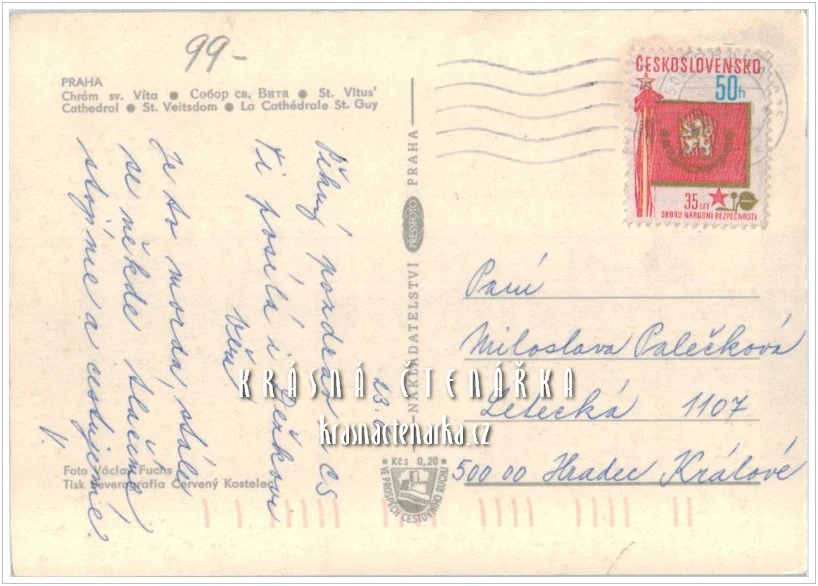 99-
PRAHA
Chrám sv. Víta ● Собор св. Вита ● St. Vitus'
Cathedral ● St. Veitsdom ● La Cathédrale St. Guy
ČESKOSLOVENSKO
50h
35 LET
SBORU NÁRODNÍ BEZPEČNOSTI
Pěkný pozdrav z ČS
Ti posílá i
Věra
Je to morda, stále
se někde tlačíme
stojíme a cestujeme.
V.
23.
NAKLADATELSTVÍ PRESSFOTO PRAHA
Paní
Miloslava Palečková
Letecká 1107
500 00 Hradec Králové
KRÁSNÁ ČTENÁŘKA
krasnactenarka.cz
Foto Václav Fuchs
Tisk Severografia Červený Kostelec
Kčs 0,20
VE PROSPĚCH CESTOVNÍHO RUCHU